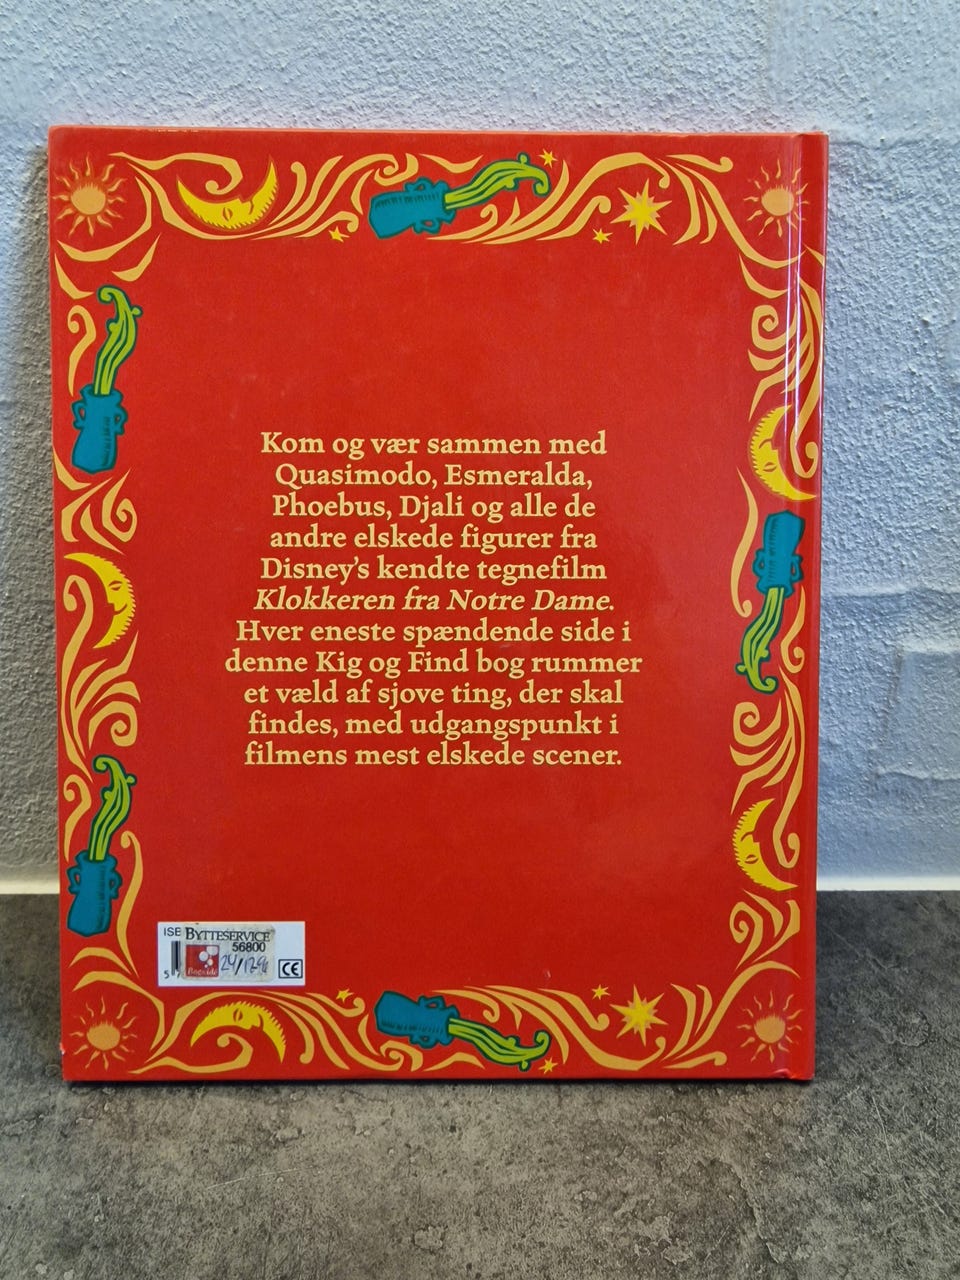 Kom og vær sammen med
Quasimodo, Esmeralda,
Phoebus, Djali og alle de
andre elskede figurer fra
Disney's kendte tegnefilm
Klokkeren fra Notre Dame.
Hver eneste spændende side i
denne Kig og Find bog rummer
et væld af sjove ting, der skal
findes, med udgangspunkt i
filmens mest elskede scener.
ISB
BYTTESERVICE
56800
Bog&idé
5
CE